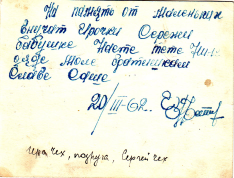 На память от маленьких
внучат Ирочки Сережи
бабушке Кате тете Нине
дяде Моле братишкам
Славе Саше
20/III-62.
Ира Чех, подруга, Сергей Чех